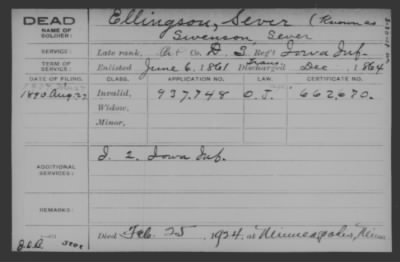 DEAD
NAME OF SOLDIER:
Ellingson, Sever (Known as
Swenson Sever
SERVICE:
Late rank, Pvt Co. D, 3, Reg't Iowa Inf.
TERM OF SERVICE:
Enlisted June 6, 1861 Trans Discharged Dec , 1864
DATE OF FILING.
CLASS.
APPLICATION NO.
LAW.
CERTIFICATE NO.
1890 Aug. 22
Invalid, 937.748 O.J. 662.670.
Widow,
Minor,
ADDITIONAL SERVICES:
I 2. Iowa Inf.
REMARKS:
Died Feb. 25, 1924, at Minneapolis, Minn